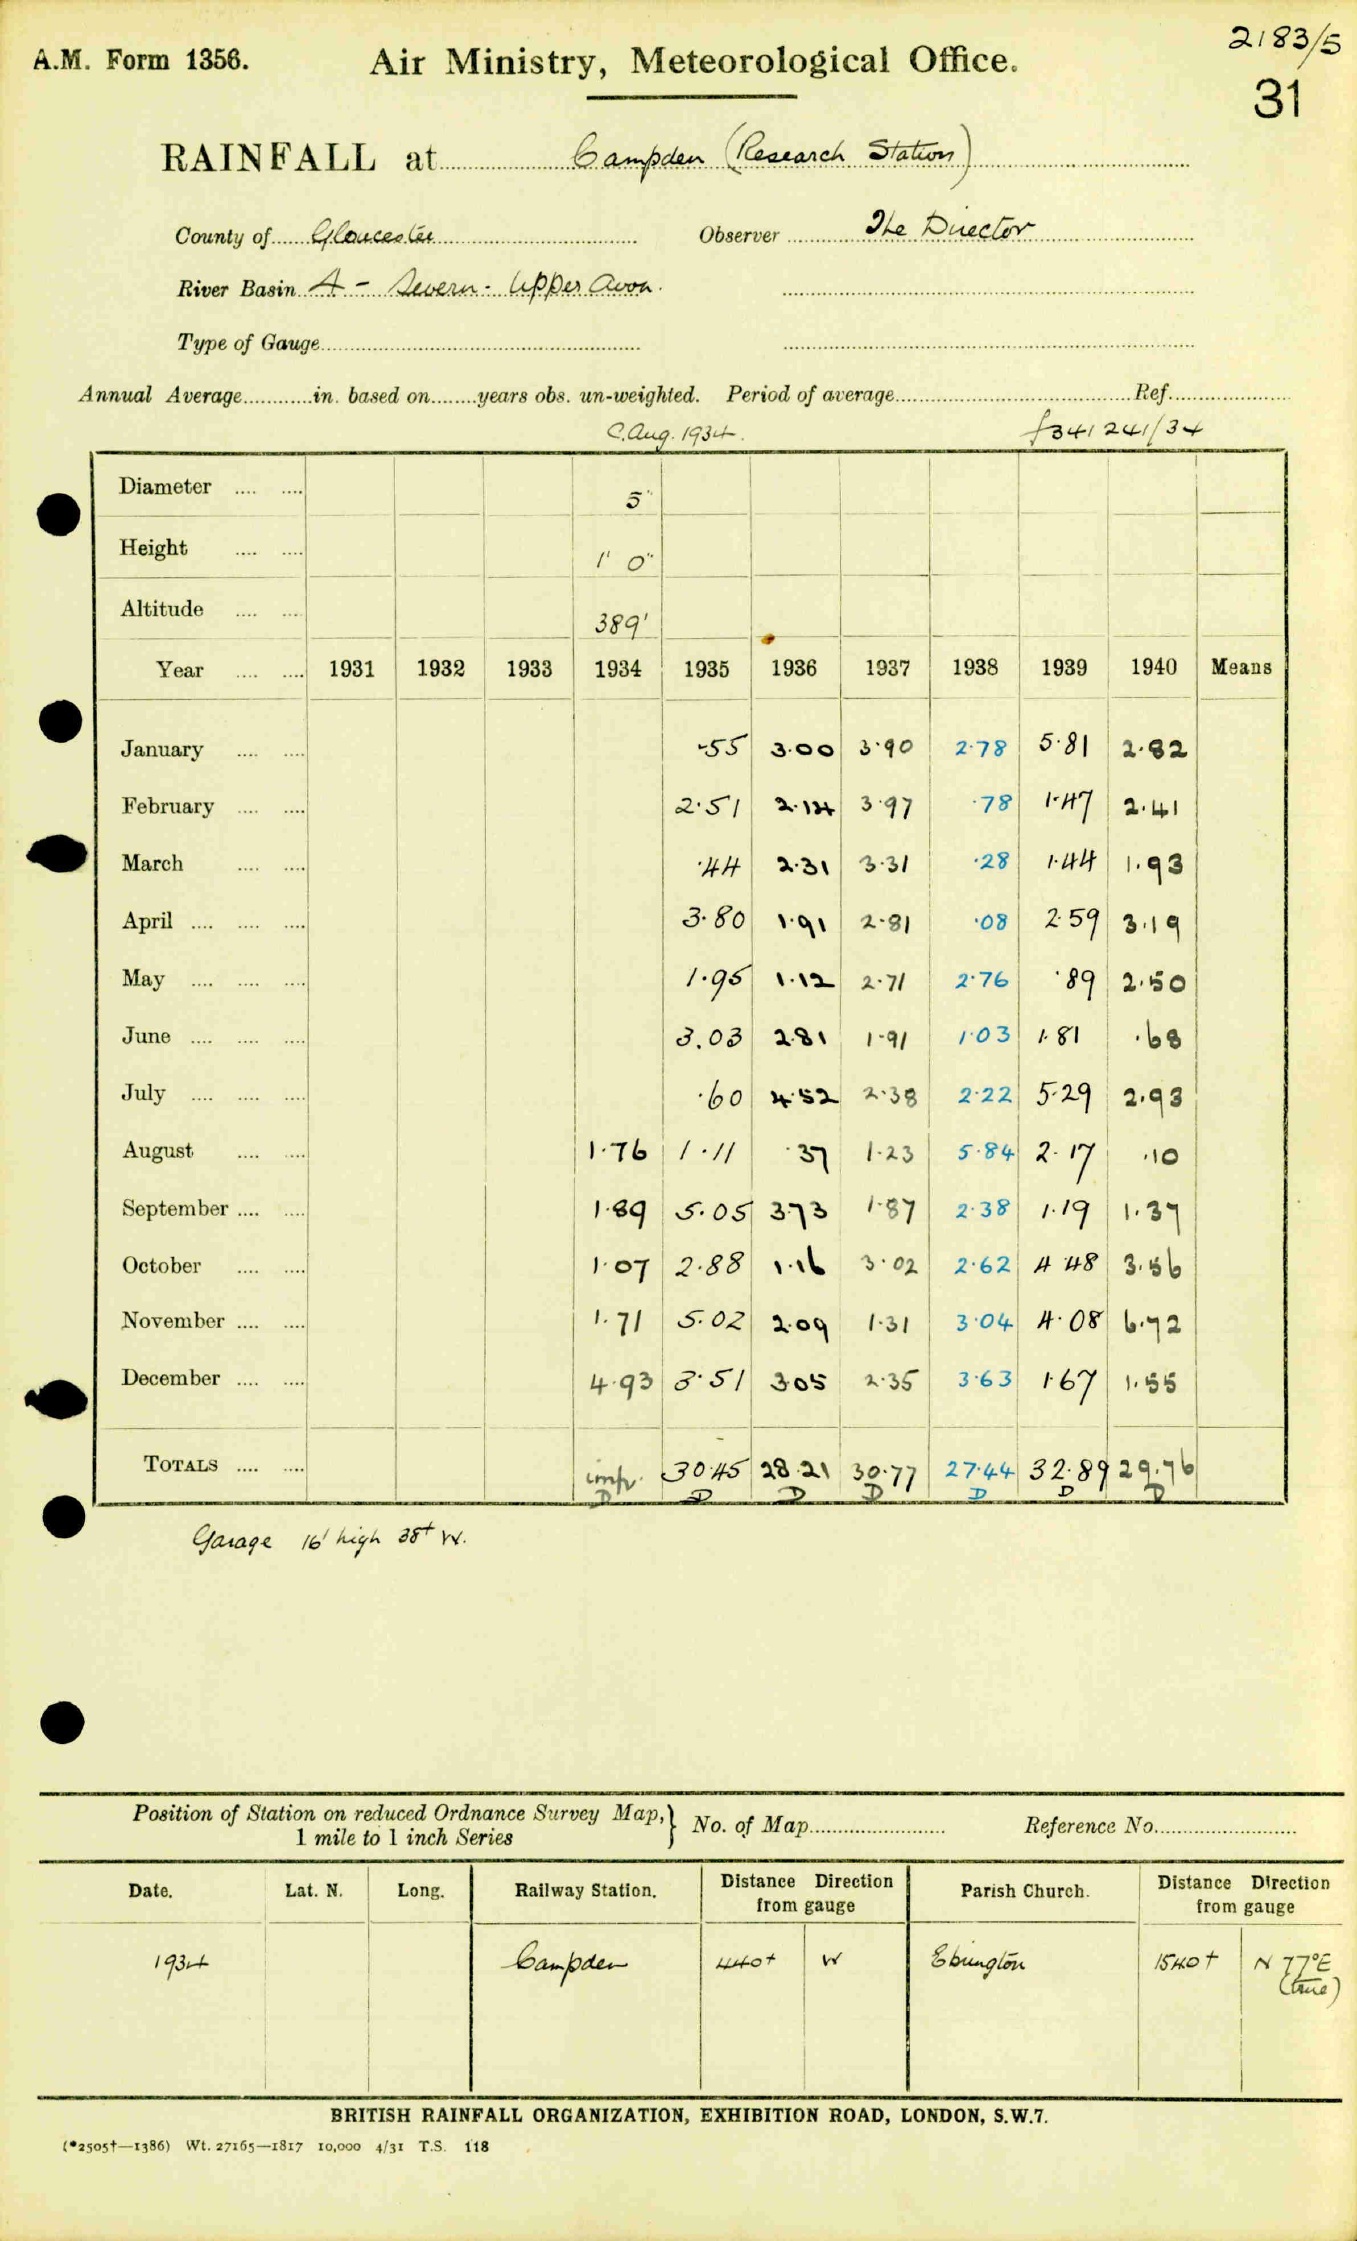 2183/5
A.M. Form 1356. Air Ministry, Meteorological Office.
31
RAINFALL at Campden (Research Station)
County of Gloucester Observer The Director
River Basin 4 - Severn - Upper Avon.
Type of Gauge
Annual Average in. based on years obs. un-weighted. Period of average Ref.
C. Aug. 1934. f341241/34
Diameter 5"
Height 1' 0"
Altitude 389'
Year 1931 1932 1933 1934 1935 1936 1937 1938 1939 1940 Means
January ·55 3·00 3·90 2·78 5·81 2·82
February 2·51 2·14 3·97 ·78 1·47 2·41
March ·44 2·31 3·31 ·28 1·44 1·93
April 3·80 1·91 2·81 ·08 2·59 3·19
May 1·95 1·12 2·71 2·76 ·89 2·50
June 3.03 2·81 1·91 1·03 1·81 ·68
July ·60 4·52 2·38 2·22 5·29 2·93
August 1·76 1·11 ·37 1·23 5·84 2·17 ·10
September 1·89 5·05 3·73 1·87 2·38 1·19 1·37
October 1·07 2·88 1·16 3·02 2·62 4·48 3·56
November 1·71 5·02 2·09 1·31 3·04 4·08 6·72
December 4·93 3·51 3·05 2·35 3·63 1·67 1·55
TOTALS impr. 30·45 28·21 30·77 27·44 32·89 29·76
D D D D D D D
Garage 16' high 38† W.
Position of Station on reduced Ordnance Survey Map, } No. of Map Reference No.
1 mile to 1 inch Series
Date. Lat. N. Long. Railway Station. Distance Direction from gauge Parish Church. Distance Direction from gauge
1934 Campden 440† W Ebrington 1540† N 77°E
(true)
BRITISH RAINFALL ORGANIZATION, EXHIBITION ROAD, LONDON, S.W.7.
(*2505†—1386) Wt. 27165—1817 10,000 4/31 T.S. 118